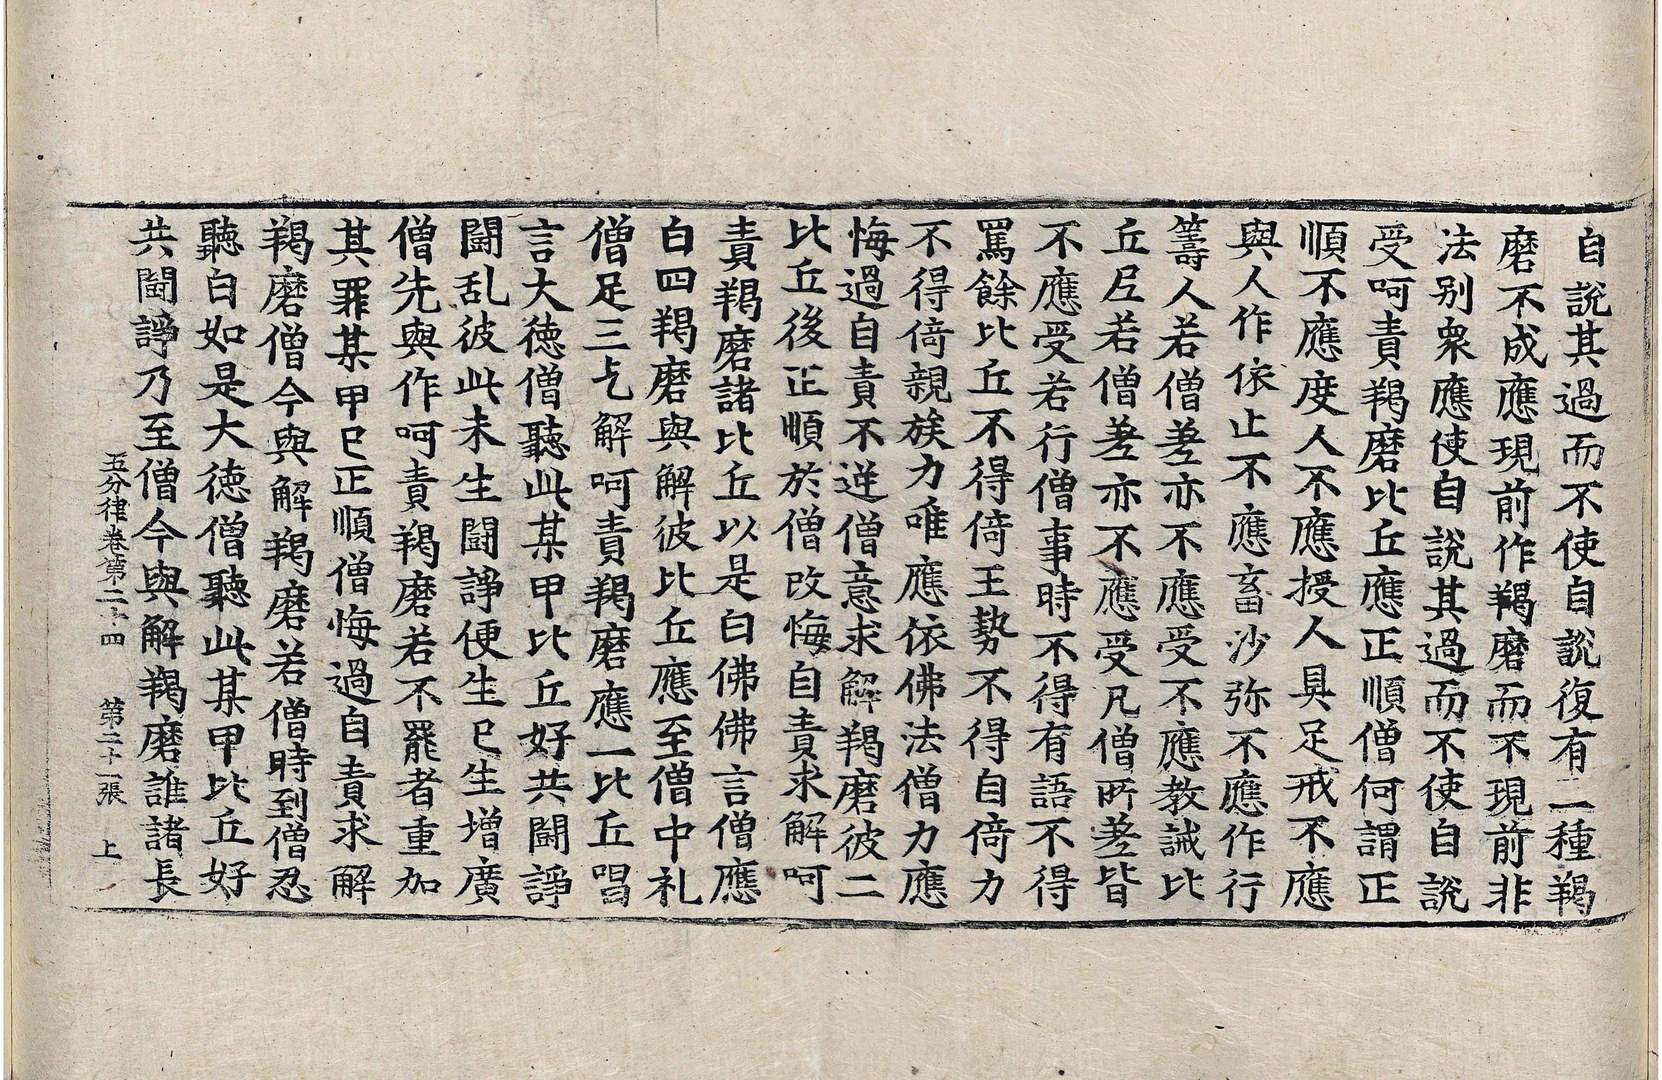 自說其過而不使自說復有二種羯
磨不成應現前作羯磨而不現前非
法別衆應使自說其過而不使自說
受呵責羯磨比丘應正順僧何謂正
順不應度人不應授人具足戒不應
與人作依止不應畜沙弥不應作行
籌人若僧差亦不應受不應教誡比
丘尼若僧差亦不應受凡僧所差皆
不應受若行僧事時不得有語不得
罵餘比丘不得倚王勢不得自倚力
不得倚親族力唯應依佛法僧力應
悔過自責不逆僧意求解羯磨彼二
比丘後正順於僧改悔自責求解呵
責羯磨諸比丘以是白佛佛言僧應
白四羯磨與解彼比丘應至僧中礼
僧足三乞解呵責羯磨應一比丘唱
言大德僧聽此某甲比丘好共鬪諍
鬪乱彼此未生鬪諍便生已生增廣
僧先與作呵責羯磨若不罷者重加
其罪某甲已正順僧悔過自責求解
羯磨僧今與解羯磨若僧時到僧忍
聽白如是大德僧聽此某甲比丘好
共鬪諍乃至僧今與解羯磨誰諸長
五分律卷第二十四 第二十一張 上